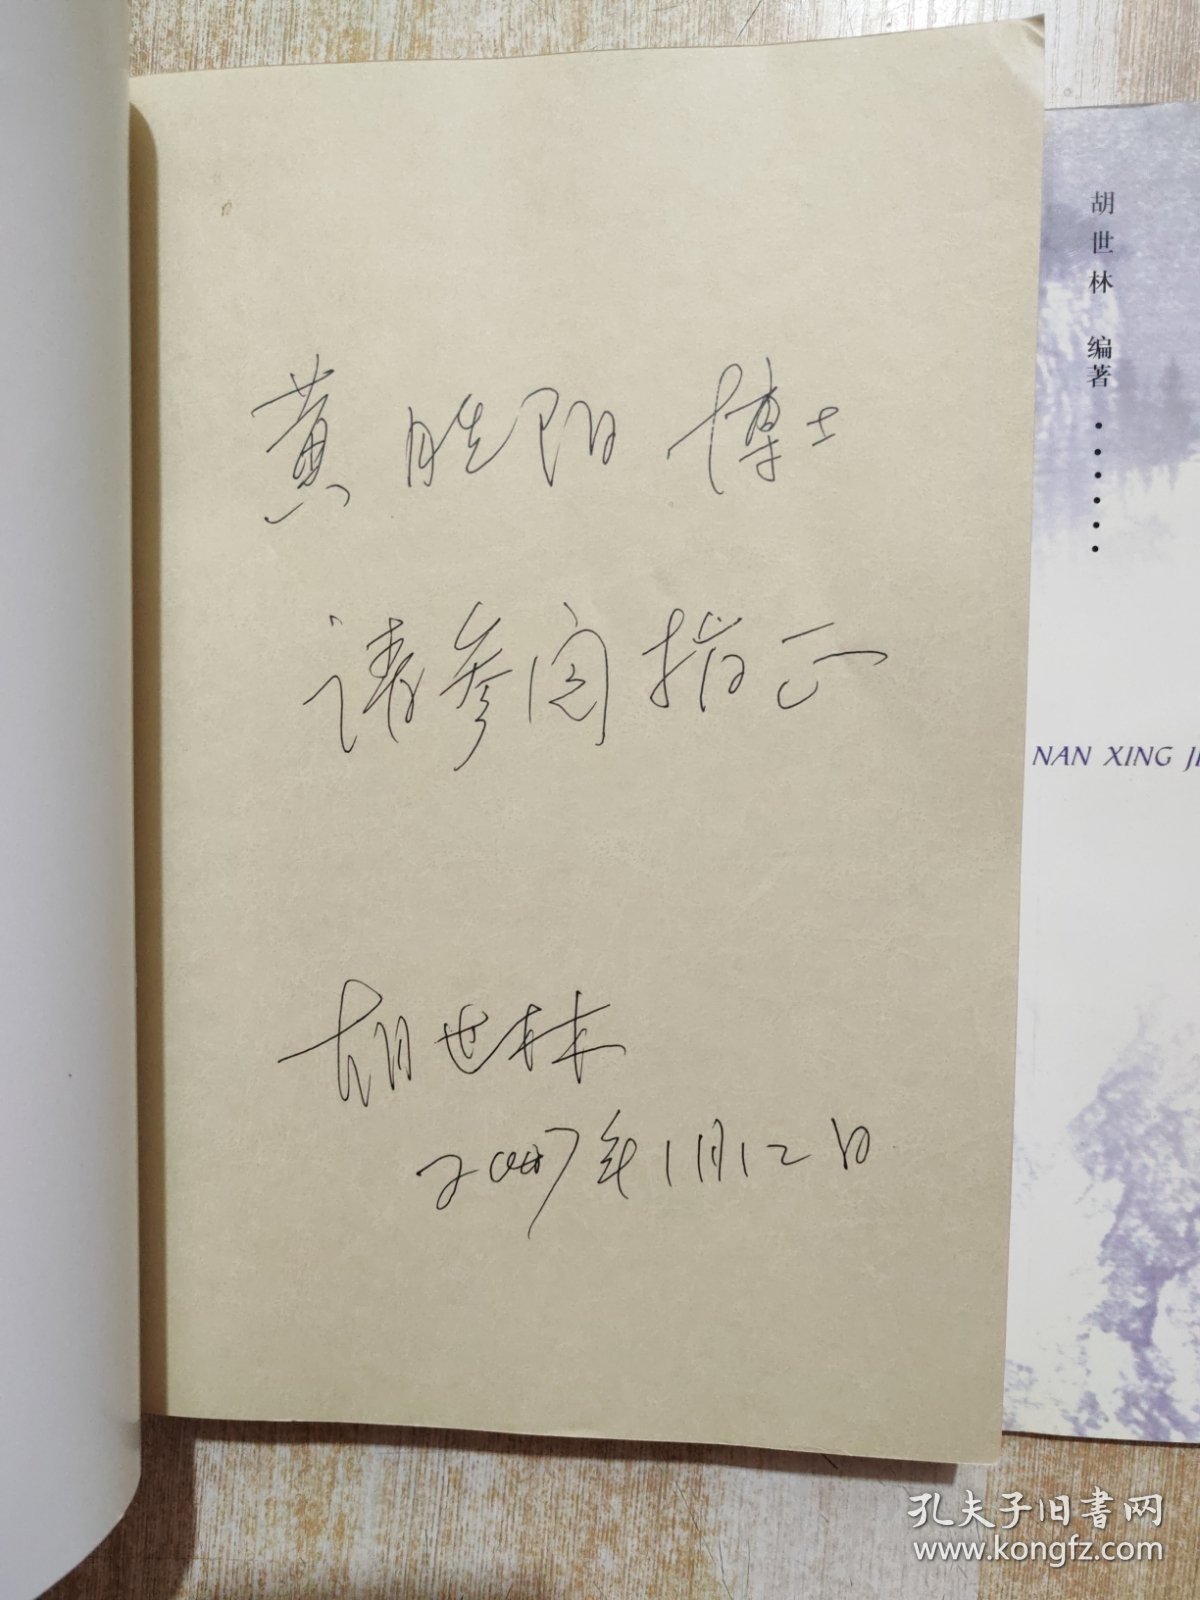 黄胜阳 博士
请参阅指正
胡世林
2007年1月12日
胡世林 编著
NAN XING JI
孔夫子旧书网
www.kongfz.com